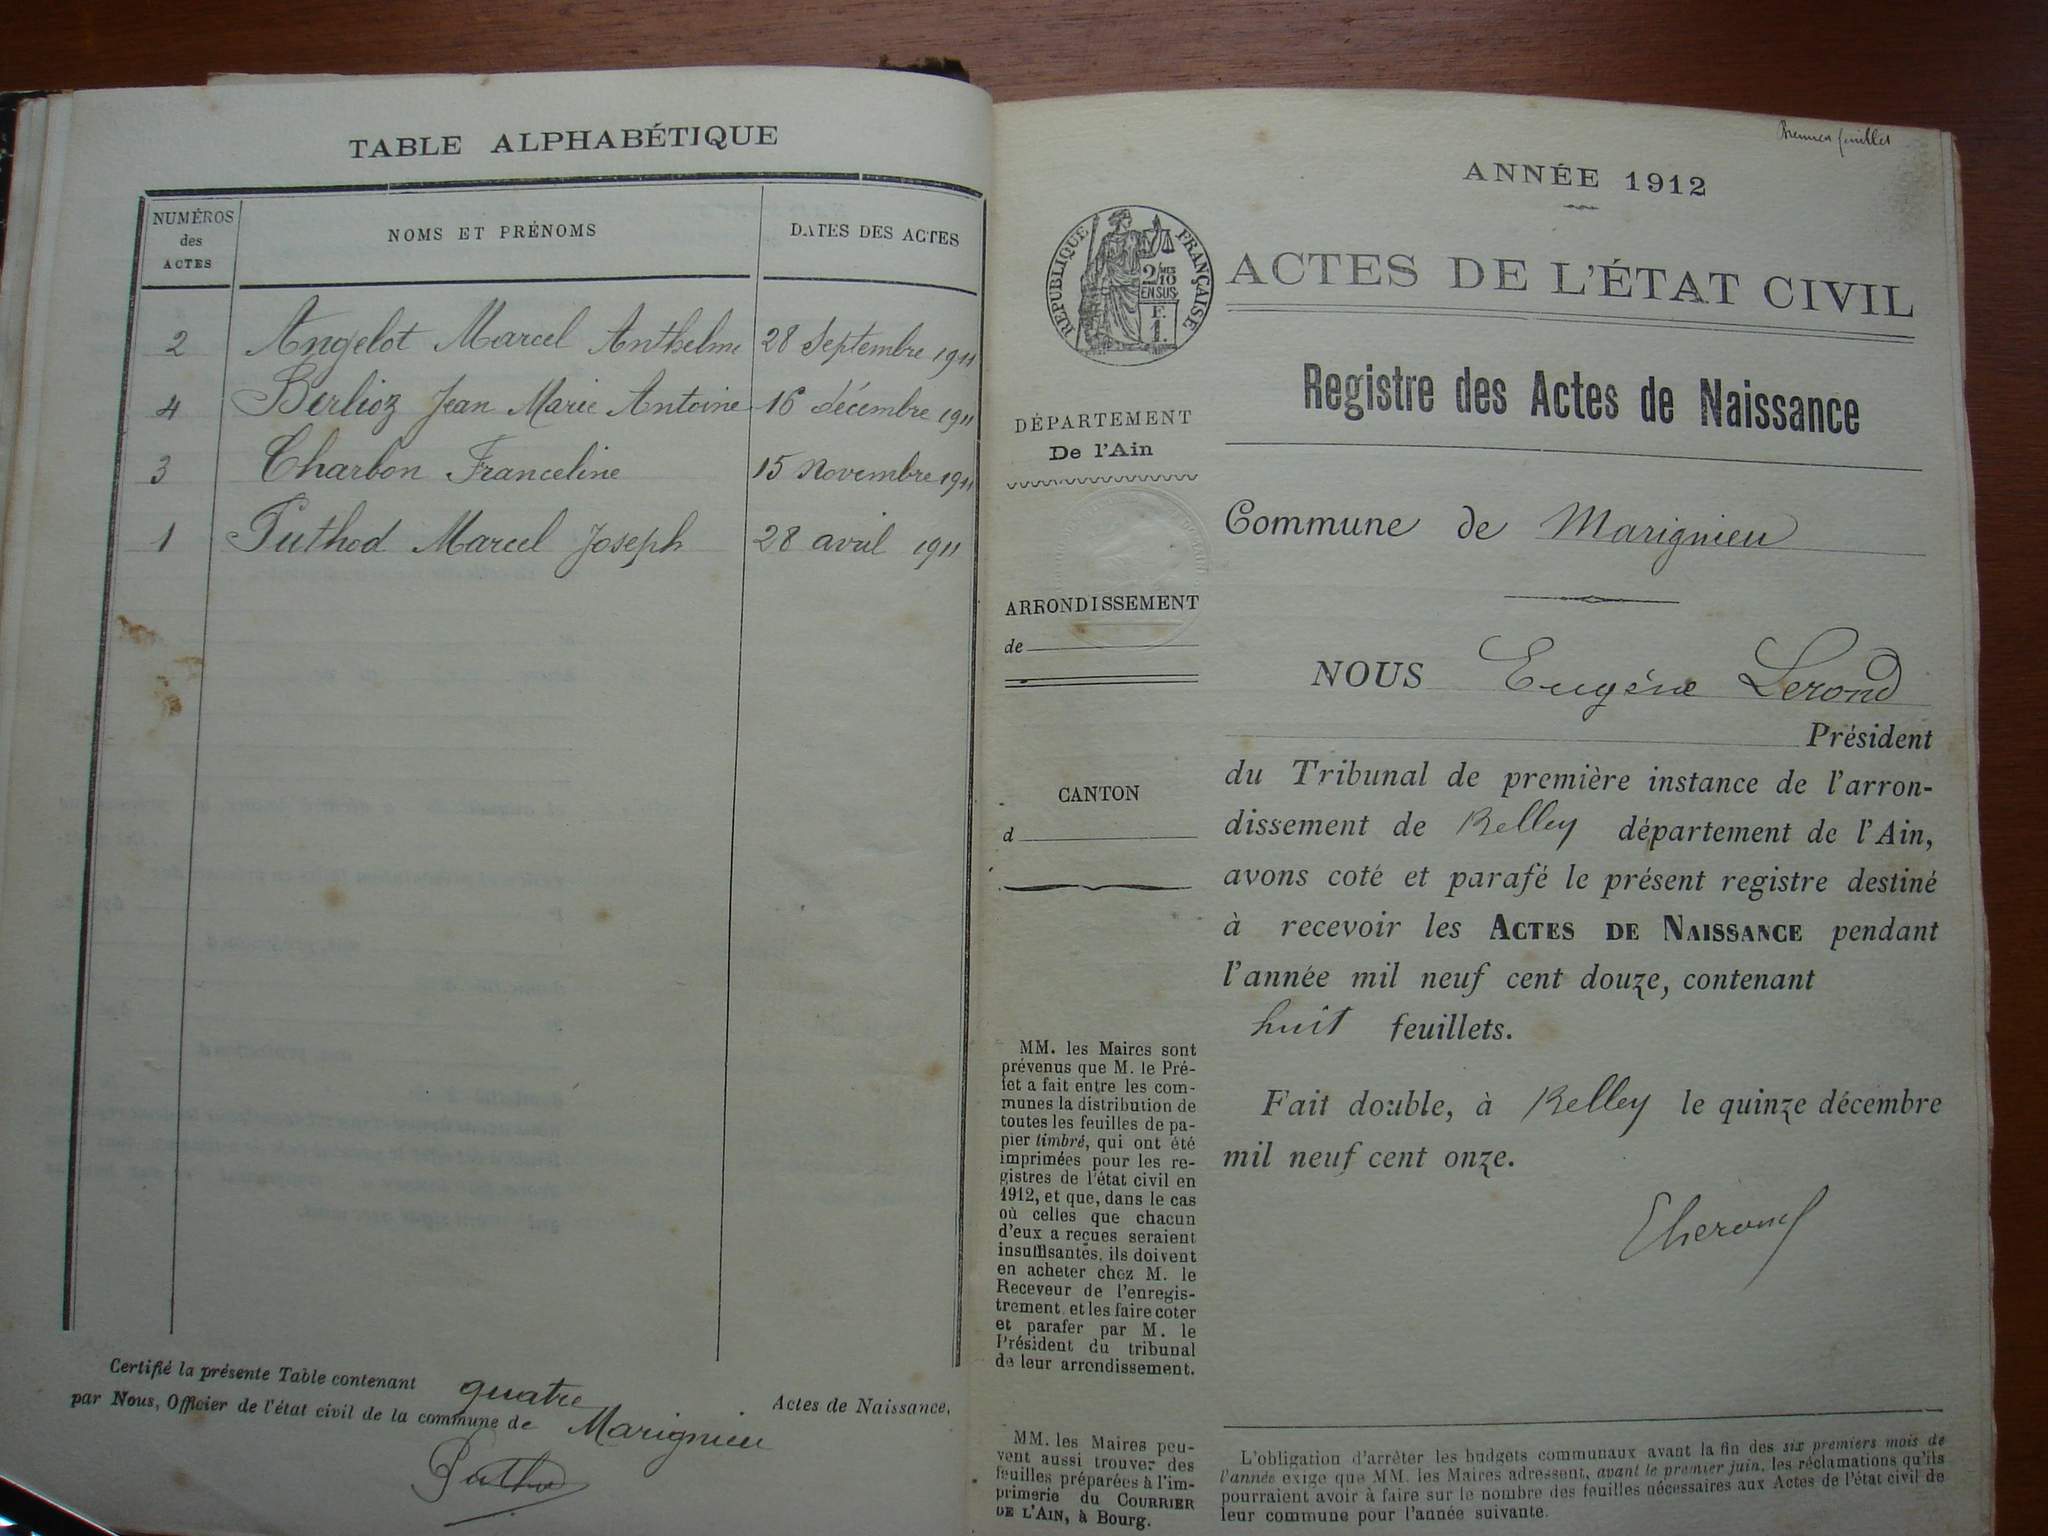 TABLE ALPHABÉTIQUE
NUMÉROS des ACTES
NOMS ET PRÉNOMS
DATES DES ACTES
2 Angelot Marcel Anthelme 28 Septembre 1911
4 Berlioz Jean Marie Antoine 16 décembre 1911
3 Charbon Franceline 15 Novembre 1911
1 Puthod Marcel Joseph 28 avril 1911
Certifié la présente Table contenant quatre Actes de Naissance,
par Nous, Officier de l'état civil de la commune de Marignieu
Puthod
Premier feuillet
ANNÉE 1912
RÉPUBLIQUE FRANÇAISE
2/10 EN SUS
F. 1.
ACTES DE L'ÉTAT CIVIL
Registre des Actes de Naissance
DÉPARTEMENT
De l'Ain
Commune de Marignieu
ARRONDISSEMENT
de
CANTON
d
NOUS Eugène Lerond
Président
du Tribunal de première instance de l'arron-
dissement de Belley département de l'Ain,
avons coté et parafé le présent registre destiné
à recevoir les ACTES DE NAISSANCE pendant
l'année mil neuf cent douze, contenant
huit feuillets.
Fait double, à Belley le quinze décembre
mil neuf cent onze.
MM. les Maires sont
prévenus que M. le Pré-
fet a fait entre les com-
munes la distribution de
toutes les feuilles de pa-
pier timbré, qui ont été
imprimées pour les re-
gistres de l'état civil en
1912, et que, dans le cas
où celles que chacun
d'eux a reçues seraient
insuffisantes, ils doivent
en acheter chez M. le
Receveur de l'enregis-
trement et les faire coter
et parafer par M. le
Président du tribunal
de leur arrondissement.
MM. les Maires peu-
vent aussi trouver des
feuilles préparées à l'im-
primerie du COURRIER
DE L'AIN, à Bourg.
L'obligation d'arrêter les budgets communaux avant la fin des six premiers mois de
l'année exige que MM. les Maires adressent, avant le premier juin, les réclamations qu'ils
pourraient avoir à faire sur le nombre des feuilles nécessaires aux Actes de l'état civil de
leur commune pour l'année suivante.